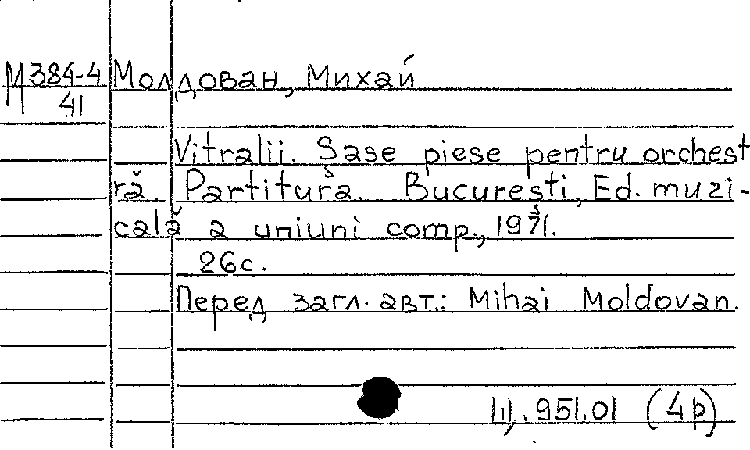 М 384-4 Молдован, Михай
41
Vitralii. Şase piese pentru orchest
ră. Partitura. Bucureşti, Ed. muzi-
cală a uniuni comp., 1971.
26с.
Перед загл. авт.: Mihai Moldovan.
951.01 (4р)